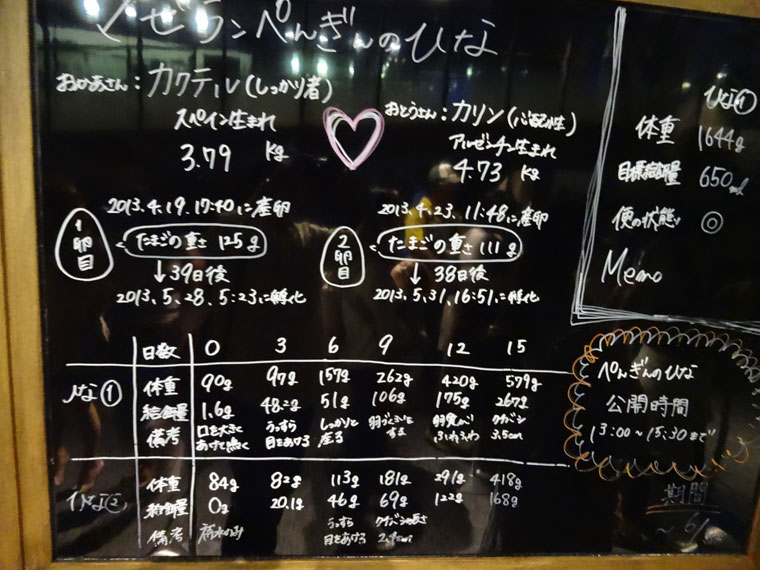 マゼランペんぎんのひな
おかあさん：カクテル（しっかり者）
スペイン生まれ
3.79 kg
おとうさん：カリン（心配性）
アルゼンチン生まれ
4.73 kg
1卵目
2013.4.19.17:40に産卵
たまごの重さ 125g
↓39日後
2013.5.28.5:23に孵化
2卵目
2013.4.23.11:48に産卵
たまごの重さ 111g
↓38日後
2013.5.31.16:51に孵化
日数 0 3 6 9 12 15
ひな①
体重 90g 97g 157g 262g 420g 579g
給餌量 1.6g 48.2g 51g 106g 175g 267g
備考 口を大きくあけて鳴く うっすら目をあける しっかりと座る
クチバシ 3.5cm
ひな②
体重 84g 82g 113g 181g 291g 418g
給餌量 0g 20.1g 46g 69g 122g 168g
備考 うっすら目をあける クチバシの長さ
ひな①
体重 1644g
目標給餌量 650
便の状態 ◎
Memo
ぺんぎんのひな
公開時間
13:00～15:30まで
期間
～6/